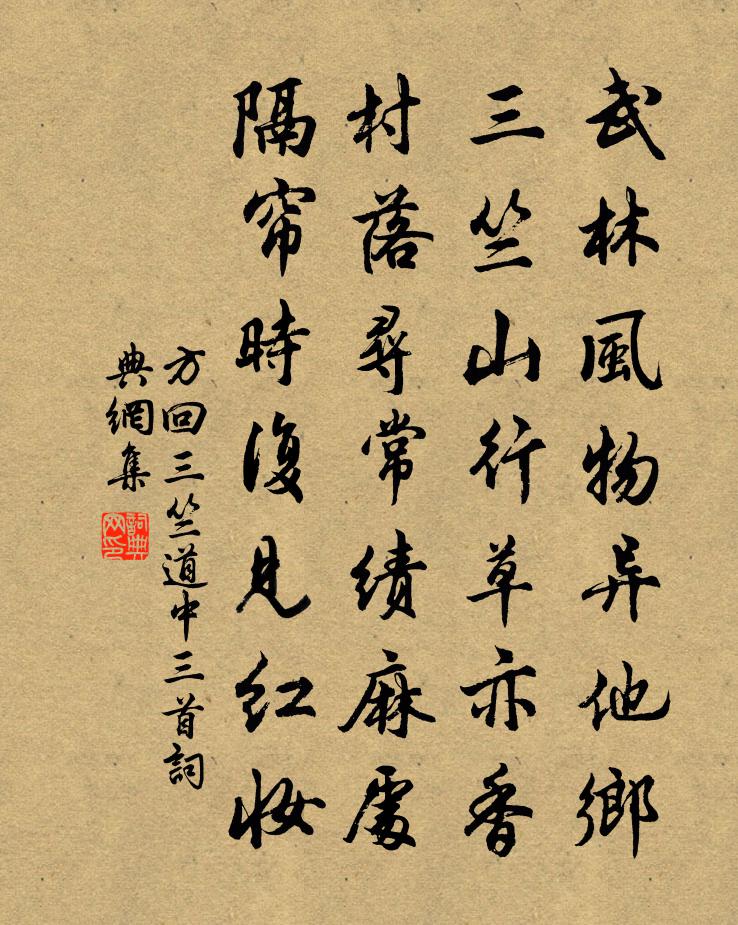 武林風物异他鄉
三竺山行草亦香
村落尋常績麻處
隔帘時復見紅妝
方回三竺道中三首詞
典網集
詞典
网印